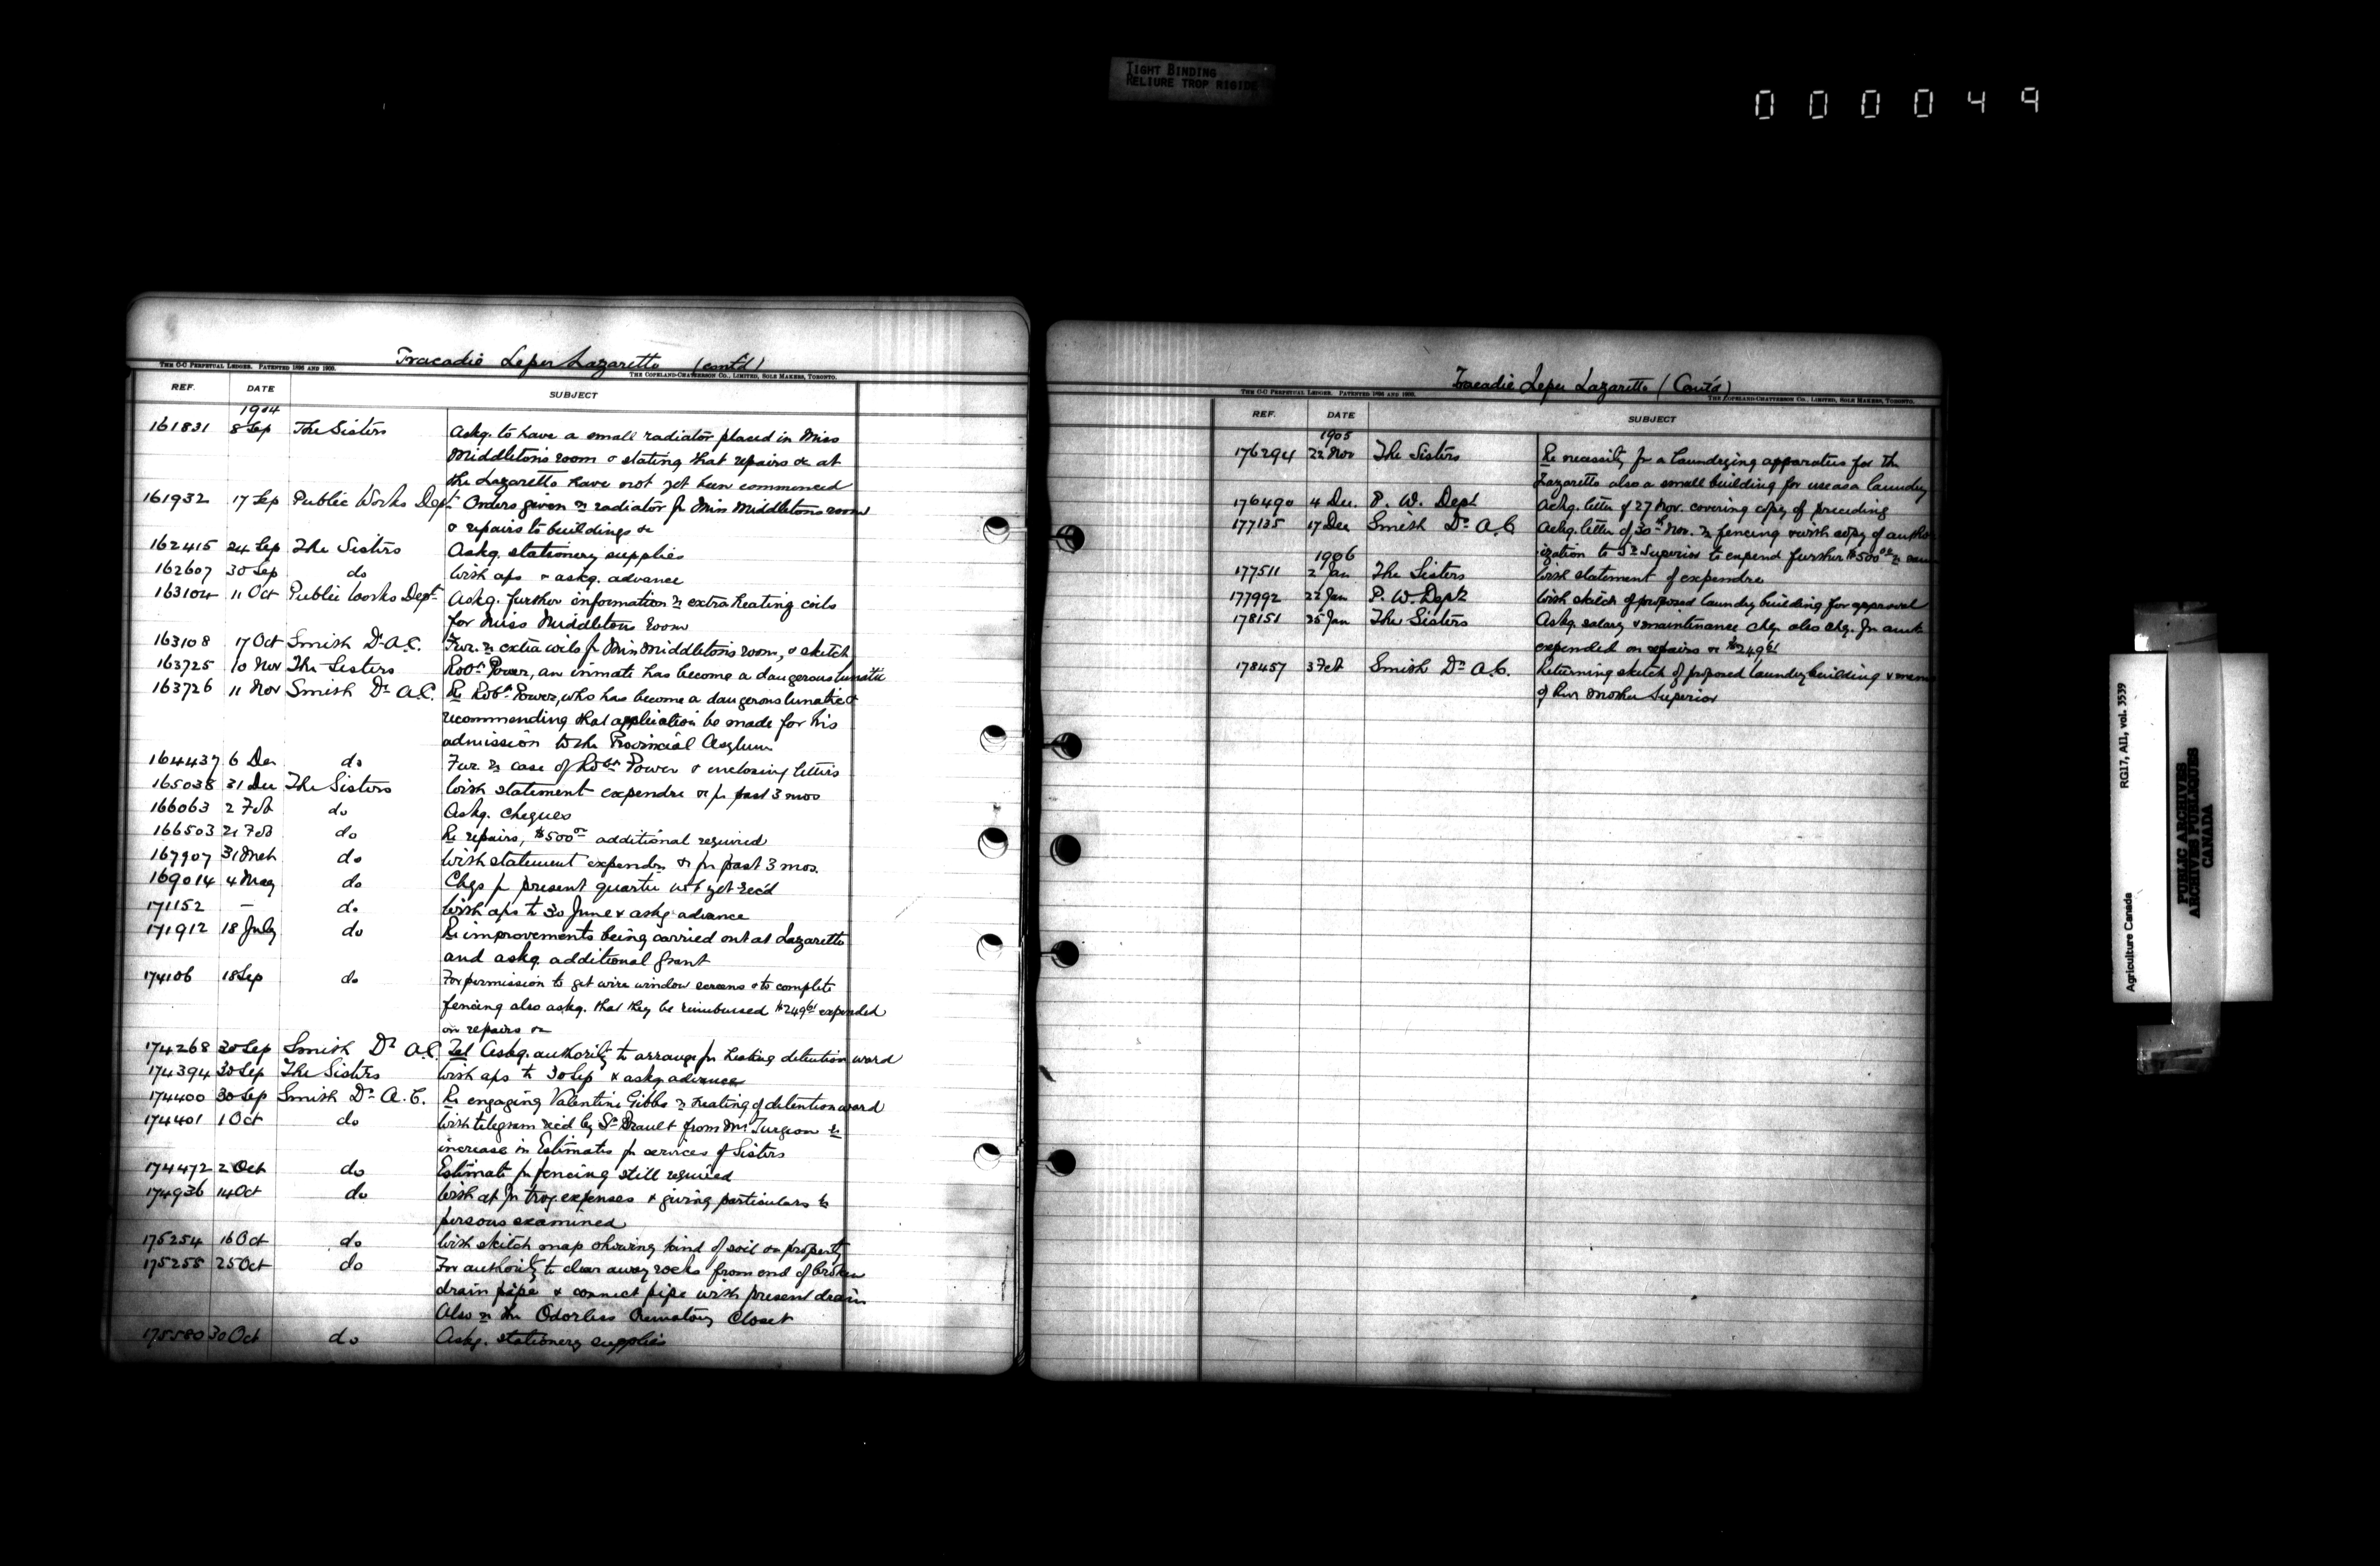 TIGHT BINDING
RELIURE TROP RIGIDE
000049
Tracadie Leper Lazaretto (cont'd)
THE C-C PERPETUAL LEDGER. PATENTED 1896 AND 1900.
THE COPELAND-CHATTERSON CO., LIMITED, SOLE MAKERS, TORONTO.
REF. DATE SUBJECT
1904
161831 8 Sep The Sisters Askg. to have a small radiator placed in Miss
Middletons room & stating that repairs &c at
the Lazaretto have not yet been commenced
161932 17 Sep Public Works Dept. Orders given re radiator for Miss Middletons room
& repairs to buildings &c
162415 24 Sep The Sisters Askg. stationery supplies
162607 30 Sep do With aps & askg. advance
163104 11 Oct Public Works Dept. Askg. further information re extra heating coils
for Miss Middletons room
163108 17 Oct Smith Dr A.C. Fur. re extra coils fr Miss Middletons room, & sketch
163725 10 Nov The Sisters Robt. Power, an inmate has become a dangerous lunatic
163726 11 Nov Smith Dr A.C. Re Robt. Power, who has become a dangerous lunatic &
recommending that application be made for his
admission to the Provincial Asylum
164437 6 Dec do Fur. re case of Robt Power & enclosing letters
165038 31 Dec The Sisters With statement expendre &c fr past 3 mos
166063 2 Feb do Askg. cheques
166503 21 Feb do Re repairs, $500.00 additional required
167907 31 Mch do With statement expendre &c fr past 3 mos.
169014 4 May do Chqs fr present quarter not yet rec'd
171152 — do With aps to 30 June & askg advance
171912 18 July do Re improvements being carried out at Lazaretto
and askg. additional grant
174106 18 Sep do For permission to get wire window screens & to complete
fencing also askg. that they be reimbursed $249.61 expended
on repairs &c
174268 30 Sep Smith Dr A.C. Tel Askg. authority to arrange for heating detention ward
174394 30 Sep The Sisters With aps to 30 Sep & askg advance
174400 30 Sep Smith Dr A.C. Re engaging Valentine Gibbs re heating of detention ward
174401 1 Oct do With telegram rec'd by Sr. Drault from Mr Turgeon re
increase in Estimates fr services of Sisters
174472 2 Oct do Estimate fr fencing still required
174936 14 Oct do With a/c fr trvg. expenses & giving particulars re
persons examined
175254 16 Oct do With sketch map showing kind of soil on property
175255 25 Oct do For authority to clear away rocks from end of broken
drain pipe & connect pipe with present drain
Also re the Odorless Crematory Closet
175580 30 Oct do Askg. stationery supplies
Tracadie Leper Lazaretto (Cont'd)
THE C-C PERPETUAL LEDGER. PATENTED 1896 AND 1900.
THE COPELAND-CHATTERSON CO., LIMITED, SOLE MAKERS, TORONTO.
REF. DATE SUBJECT
1905
176294 22 Nov The Sisters Re necessity fr a laundrying apparatus for the
Lazaretto also a small building for use as a laundry
176490 4 Dec. P. W. Dept Ackg. letter of 27 Nov. covering copy of preceding
177135 17 Dec Smith Dr A.C. Ackg. letter of 30th Nov. re fencing & with copy of author
ization to Sr. Superior to expend further $500.00 re
1906
177511 2 Jan The Sisters With statement of expendre
177992 22 Jan P. W. Dept With sketch of proposed laundry building for approval
178151 25 Jan The Sisters Askg. salary & maintenance chq. also chq. for amt.
expended on repairs &c $249.61
178457 3 Feb Smith Dr A.C. Returning sketch of proposed laundry building &
of Rev Mother Superior
RG17, AI1, vol. 3539
Agriculture Canada
PUBLIC ARCHIVES
ARCHIVES PUBLIQUES
CANADA